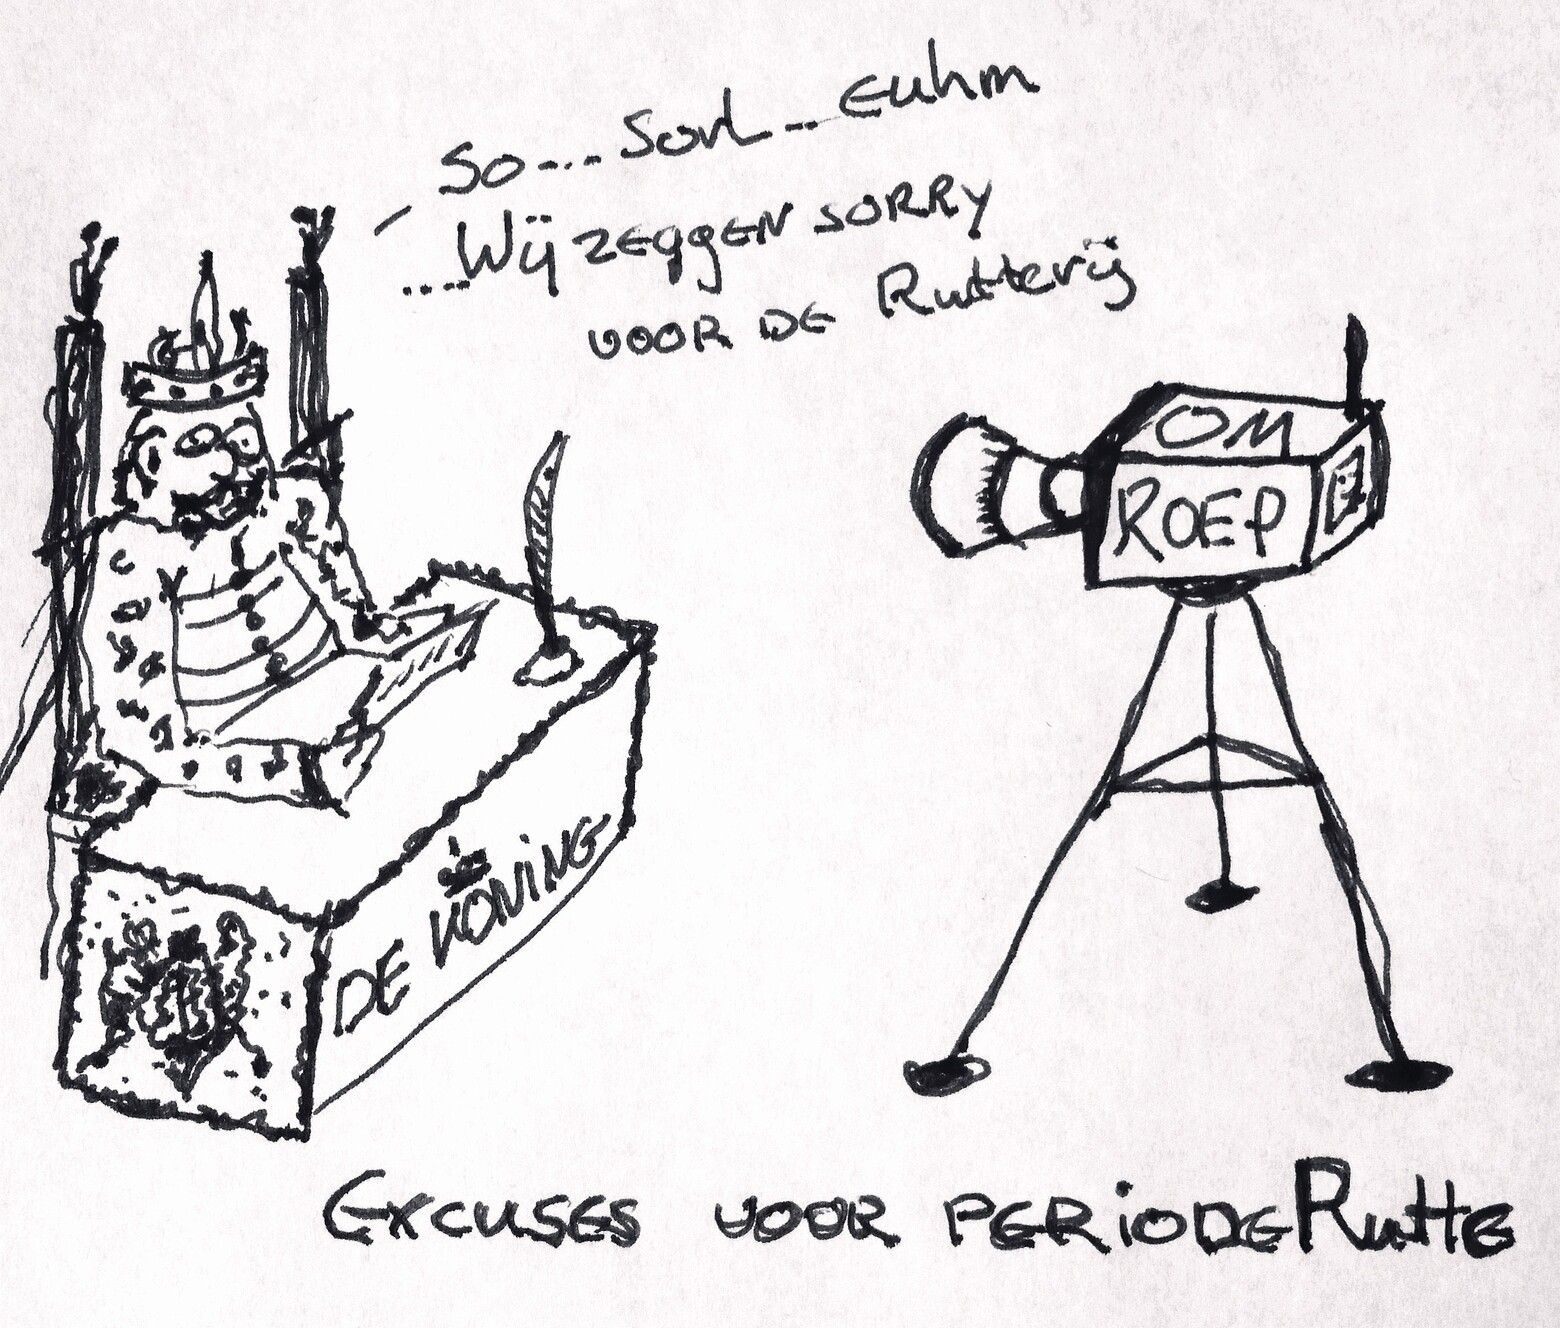 So... Sorl... Euhm
....Wij zeggen sorry
voor de Rutterij
OM
ROEP
DE KONING
Excuses voor periode Rutte